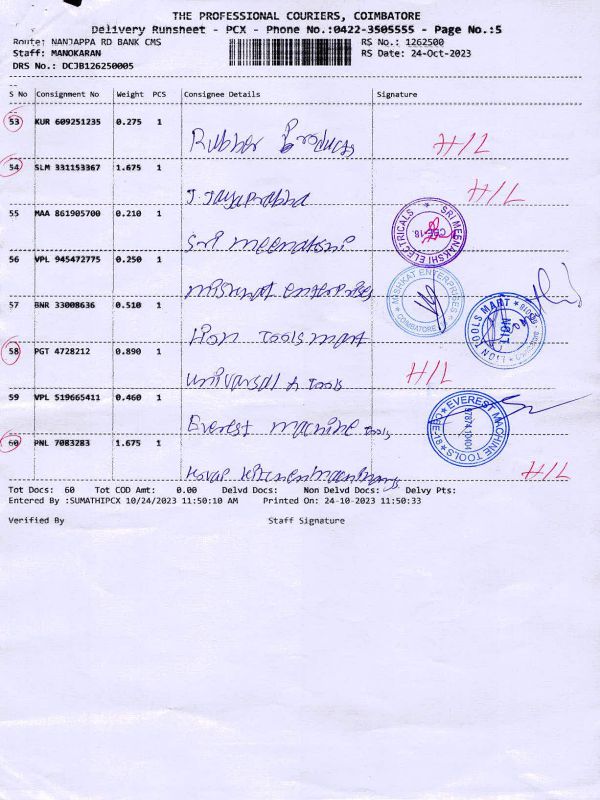 THE PROFESSIONAL COURIERS, COIMBATORE
Delivery Runsheet - PCX - Phone No.:0422-3505555 - Page No.:5
Route: NANJAPPA RD BANK CMS RS No.: 1262500
Staff: MANOKARAN RS Date: 24-Oct-2023
DRS No.: DCJB126250005
S No Consignment No Weight PCS Consignee Details Signature
53 KUR 609251235 0.275 1
Rubber Products H/L
54 SLM 331153367 1.675 1
J. Jayaprabha H/L
55 MAA 861905700 0.210 1
Sri meenakshi SRI MEENAKSHI ELECTRICALS CBE-18.
56 VPL 945472775 0.250 1
mishkat enterprises MISHKAT ENTERPRISES COIMBATORE
57 BNR 33008636 0.510 1
Lion Tools mart LION TOOLS MART
58 PGT 4728212 0.890 1
Universal A Tools H/L
59 VPL 519665411 0.460 1
Everest machine Tools EVEREST MACHINE TOOLS
60 PNL 7083283 1.675 1
H/L
Tot Docs: 60 Tot COD Amt: 0.00 Delvd Docs: Non Delvd Docs: Delvy Pts:
Entered By :SUMATHIPCX 10/24/2023 11:50:10 AM Printed On: 24-10-2023 11:50:33
Verified By Staff Signature